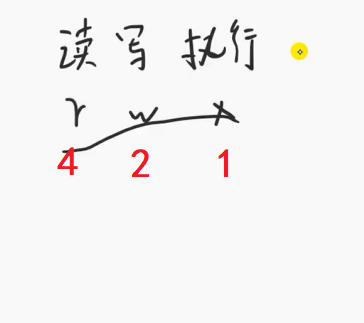 读 写 执行
r w x
4 2 1